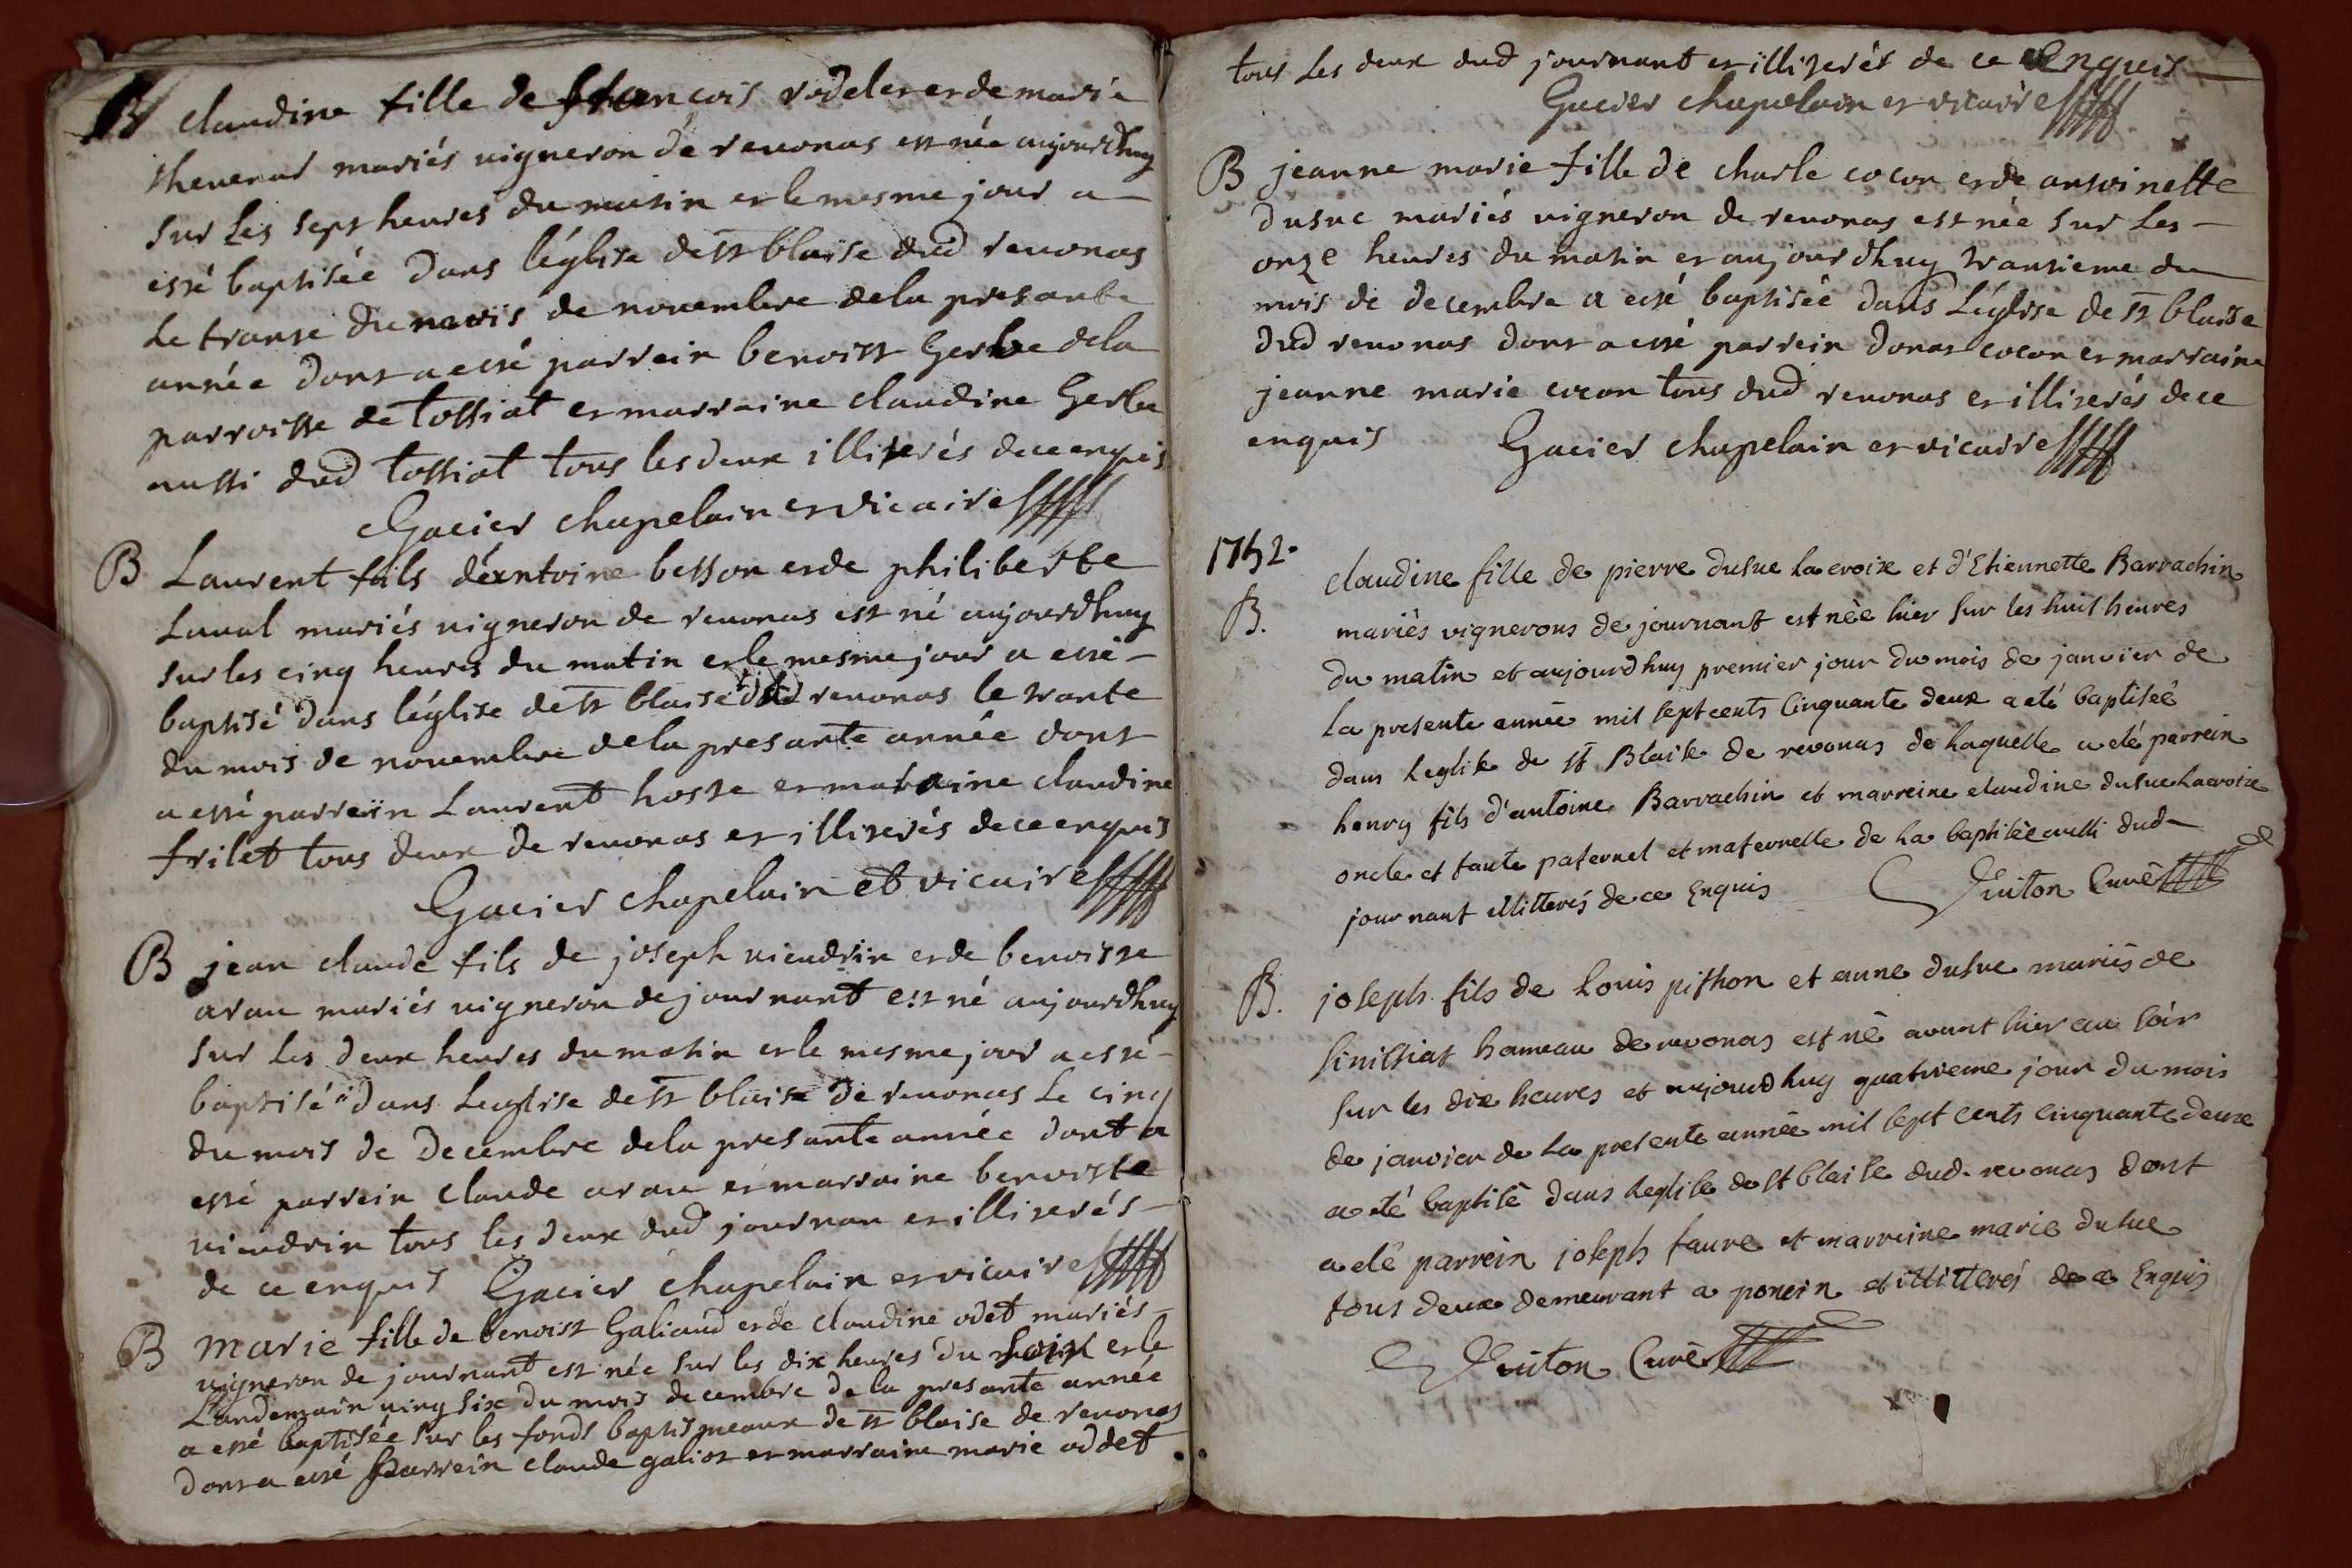 B claudine fille de francois rodeler et de marie
thevenar mariés vigneron de revonas est née aujourdhuy
sur les sept heures du matin et le mesme jour a
esté baptisée dans léglise de st blaise dud revonas
Le trante du mois de novembre dela presante
année dont a esté parrein benoist Gerbe dela
parroisse de tossiat et marraine claudine Gerbe
aussi dud tossiat tous les deux illiterés de ce enquis
Gacier chapelain et vicaire
B Laurent fails déantoine besson et de philiberte
Laval mariés vigneron de revonas est né aujourdhuy
sur les cinq heures du matin et le mesme jour a esté
baptisé dans léglise de st blaise dud revonas le trante
du mois de novembre dela presante année dont
a esté parrein Laurent hoste et maraine claudine
frilet tous deux de revonas et illiterés de ce enquis
Gacier chapelain et vicaire
B jean claude fils de joseph vieudrin et de benoiste
arau mariés vigneron de journant est né aujourdhuy
sur les deux heures du matin et le mesme jour a esté
baptisé dans Leglise de st blaise de revonas Le cinq
du mois de decembre dela presante année dont a
esté parrein claude arau et marraine benoiste
vieudrin tous les deux dud journan et illiterés
de ce enquis Gacier chapelain et vicaire
B Marie fille de benoist Galiand et de claudine odet mariés
vigneron de journant est née sur les dix heures du soir et le
Landemain ving six du mois decembre de la presante année
a esté baptisée sur les fonds baptismeaux de st blaise de revonas
dont a esté parrein claude galiot et marraine marie oddet
tous les deux dud journant et illiterés de ce Enquis
Gacier chapelain et vicaire
B jeanne marie fille de charle cocon et de antoinette
dusuc mariés vigneron de revonas est née sur les
onze heures du matin et aujourdhuy trantieme du
mois de decembre a esté baptisée dans Léglise de st blaise
dud revonas dont a esté parrein donat cocon et marraine
jeanne marie cocon tous dud revonas et illiterés de ce
enquis Gacier chapelain et vicaire
1752.
B. claudine fille de pierre dusuc Lacroix et d'Etiennette Barrachin
mariés vignerons de journant est née hier sur les huit heures
du matin et aujourdhuy premier jour du mois de janvier de
la presente année mil sept cents Cinquante deux a eté baptisée
dans Leglise de st Blaise de revonas de Laquelle a eté parrein
henry fils d'antoine Barrachin et marreine claudine dusuc Lacroix
oncle et tante paternel et maternelle de La baptisée aussi dud
journant illitterés de ce Enquis Curé
B. joseph fils de Louis pithon et anne dusuc mariés de
Senissiat hameau de revonas est né avant hier au soir
sur les dix heures et aujourdhuy quatrieme jour du mois
de janvier de La presente année mil sept cents cinquante deux
a eté baptisé dans Leglise de st blaise dud. revonas dont
a eté parrein joseph faure et marreine marie dusuc
tous deux demeurant a poncin et illitterés de ce Enquis
Curé